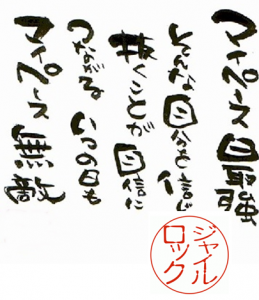 マイペース最強
そんな自分を信じ
抜くことが自信に
つながるいつの日も
マイペース無敵
ジャイル
ロック